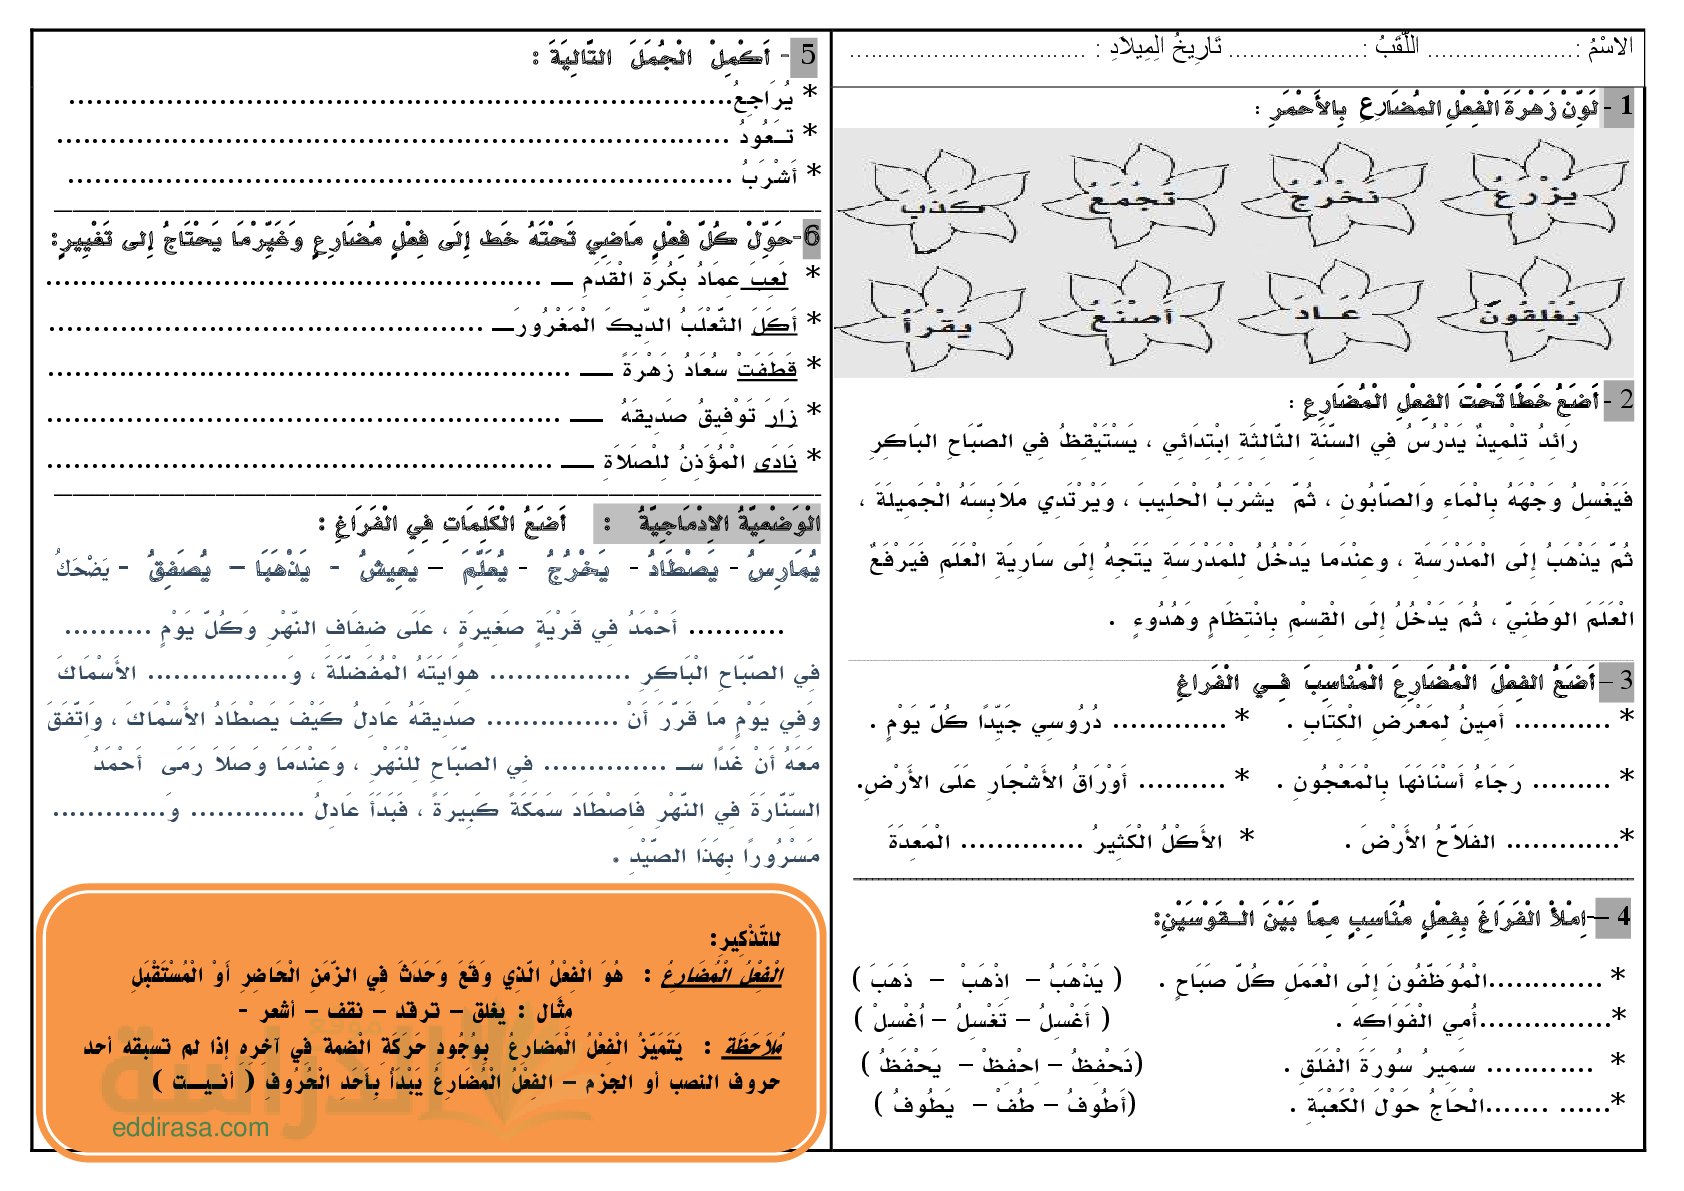 الاسْمُ :..................... اللَّقَبُ :................... تَارِيخُ المِيلاَدِ : ..................................
1 - لَوِّنْ زَهْرَةَ الْفِعْلِ المُضَارِعِ بِالأَحْمَرِ :
يَزْرَعُ نَخْرُجُ تَجْمَعُ كَذَبَ
يُغْلِقُونَ عَـادَ أَصْنَعُ يَقْرَأُ
2 - أَضَعُ خَطًّا تَحْتَ الفِعْلِ الْمُضَارِعِ :
رَائِدُ تِلْمِيذٌ يَدْرُسُ فِي السَّنَةِ الثَّالِثَةِ اِبْتِدَائِي ، يَسْتَيْقِظُ فِي الصَّبَاحِ البَاكِرِ
فَيَغْسِلُ وَجْهَهُ بِالْمَاءِ وَالصَّابُونِ ، ثُمَّ يَشْرَبُ الْحَلِيبَ ، وَيَرْتَدِي مَلاَبِسَهُ الْجَمِيلَةَ ،
ثُمَّ يَذْهَبُ إِلَى الْمَدْرَسَةِ ، وعِنْدَما يَدْخُلُ لِلْمَدْرَسَةِ يَتَجِهُ إِلَى سَارِيَةِ الْعَلَمِ فَيَرْفَعُ
الْعَلَمَ الوَطَنِيَّ ، ثُمَ يَدْخُلُ إِلَى الْقِسْمِ بِانْتِظَامٍ وَهُدُوءٍ .
3 – أَضَعُ الفِعْلَ الْمُضَارِعَ الْمُنَاسِبَ فِـي الْفَراغِ
* ........... أَمِينُ لِمَعْرَضِ الْكِتَابِ . * ............. دُرُوسِي جَيِّدًا كُلَّ يَوْمٍ .
* ......... رَجَاءُ أَسْنَانَهَا بِالْمَعْجُونِ . * .......... أَوْرَاقُ الأَشْجَارِ عَلَى الأَرْضِ.
*............. الفَلاَّحُ الأَرْضَ . * الأَكْلُ الْكَثِيرُ .............. الْمَعِدَةَ
4 –اِمْلأْ الْفَرَاغَ بِفِعْلٍ مُنَاسِبٍ مِمَّا بَيْنَ الْـقَوْسَيْنِ:
* .............الْمُوَظَّفُونَ إِلَى الْعَمَلِ كُلَّ صَبَاحٍ . ( يَذْهَبُ – اِذْهَبْ – ذَهَبَ )
*...............أُمِي الْفَوَاكِهَ . ( أَغْسِلُ – تَغْسِلُ – اُغْسِلْ )
* ............ سَمِيرُ سُورَةَ الْفَلَقِ . (نَحْفِظُ – اِحْفِظْ – يَحْفَظُ )
*...... .......الْحَاجُ حَوْلَ الْكَعْبَةِ . (أَطُوفُ – طُفْ – يَطُوفُ )
5 - أَكْمِلْ الْجُمَلَ التَّالِيَةَ :
* يُرَاجِعُ...........................................................................
* تـَعُودُ ............................................................................
* أَشْرَبُ ...........................................................................
6-حَوِّلْ كُلَّ فِعْلٍ مَاضِي تَحْتَهُ خَط إِلَى فِعْلٍ مُضَارِعٍ وَغَيِّرْمَا يَحْتَاجُ إِلى تَغْيِيرٍ:
* لَعِبَ عِمَادُ بِكُرَةِ الْقَدَمِ ــ ........................................................
* أَكَلَ الثَّعْلَبُ الدِّيكَ الْمَغْرُورَـــ .................................................
* قَطَفَتْ سُعَادُ زَهْرَةً ـــ ...........................................................
* زَارَ تَوْفِيقُ صَدِيقَهُ ـــ ..........................................................
* نَادَى الْمُؤَذِنُ لِلْصَلاَةِ ـــ .........................................................
الْوَضْعِيَّةُ الاِدْمَاجِيَّةُ : أَضَعُ الْكَلِمَاتِ فِي الْفَرَاغِ :
يُمَارِسُ - يَصْطَادُ - يَخْرُجُ - يُعَلِّمَ – يَعِيشُ - يَذْهَبَا – يُصَفِقُ - يَضْحَكُ
........... أَحْمَدُ فِي قَرْيَةٍ صَغِيرَةٍ ، عَلَى ضِفَافِ النَّهْرِ وَكُلَّ يَوْمٍ ..........
فِي الصَّبَاحِ الْبَاكِرِ ................ هِوَايَتَهُ الْمُفَضَّلَةَ ، وَ................ الأَسْمَاكَ
وَفِي يَوْمٍ مَا قَرَّرَ أَنْ ............... صَدِيقَهُ عَادِلُ كَيْفَ يَصْطَادُ الأَسْمَاكَ ، وَاتَّفَقَ
مَعَهُ أَنْ غَدًا سـ .............. فِي الصَّبَاحِ لِلْنَهْرِ ، وَعِنْدَمَا وَصَلاَ رَمَى أَحْمَدُ
السِّنَّارَةَ فِي النَّهْرِ فَاصْطَادَ سَمَكَةً كَبِيرَةً ، فَبَدَأَ عَادِلُ ............. وَ.............
مَسْرُورًا بِهَذَا الصَّيْدِ .
للتَّذْكِيرِ:
الْفِعْلُ الْمُضَارِعُ : هُوَ الْفِعْلُ الَّذِي وَقَعَ وَحَدَثَ فِي الزَّمَنِ الْحَاضِرِ أَوْ الْمُسْتَقْبَلِ
مِثَال : يغلق – ترقد – نقف – أشعر -
مُلاَحَظَة : يَتَمَيَّزُ الْفِعْلُ الْمَضارِعُ بِوُجُودِ حَرَكَةِ الضَمة فِي آخرِهِ إِذا لم تسبقه أحد
حروف النصب أو الجزم – الفِعْلُ الْمُضَارِعُ يَبْدَأُ بِأَحَدِ الْحُرُوفِ ( أنـيــت )
موقع
الدراسة
eddirasa.com